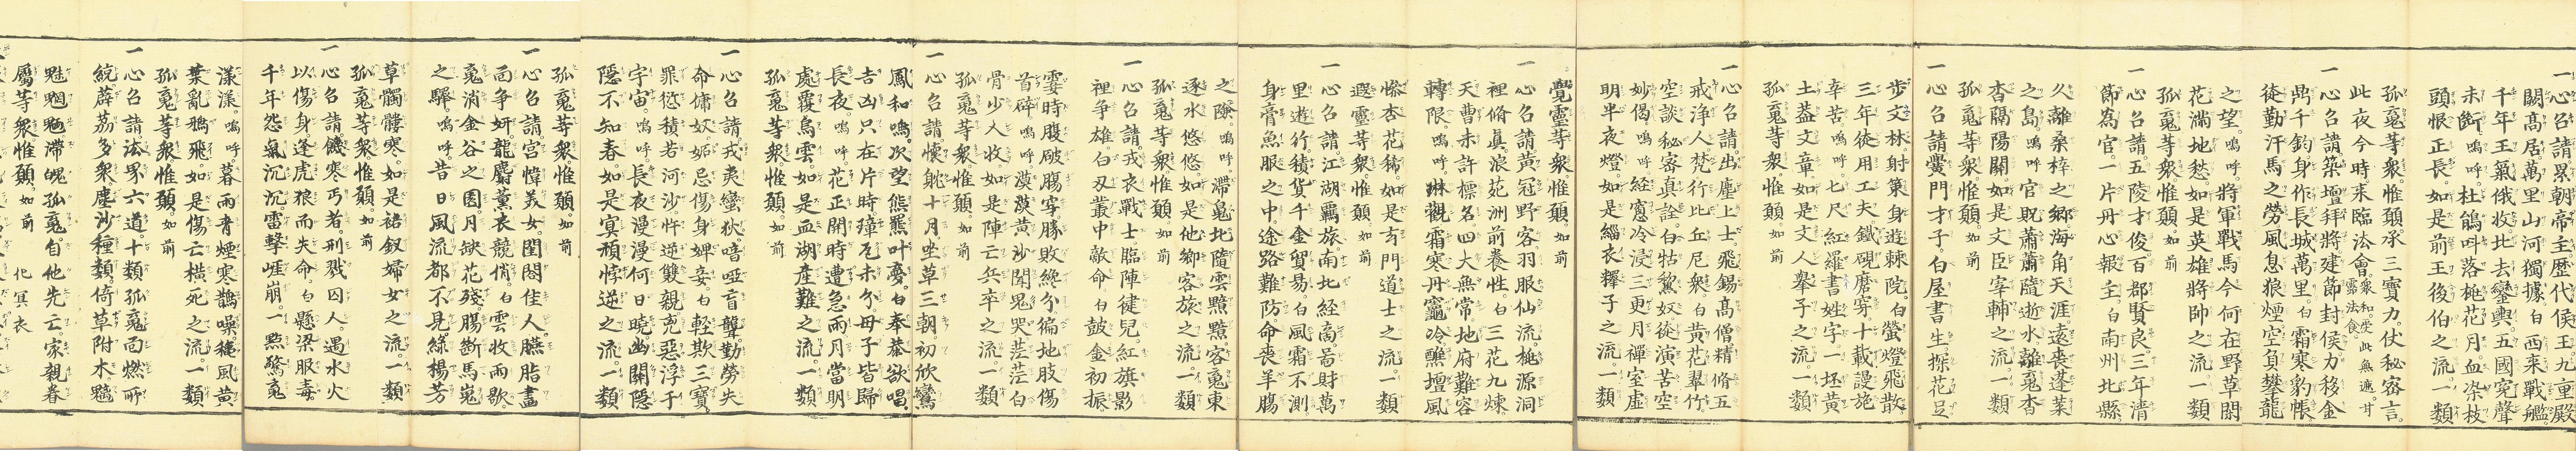 一心召請累朝帝主歷代侯王九重殿
闕高居萬里山河獨據。白西来戰艦。
千年王氣俄收北去鑾輿五國寃聲
未斷嗚呼。杜鵑呌落桃花月血染枝
頭恨正長。如是前王後伯之流。一類
孤䰟等衆惟願承三寶力。仗秘密言。
此夜今時来臨法會。衆和。受此無遮甘露法食。
一心召請築壇拜將建節封侯力移金
鼎千鈞身作長城萬里。白霜寒豹帳
徒勤汗馬之勞風息狼煙空負攀龍
之望。嗚呼。將軍戰馬今何在野草閑
花滿地愁。如是英雄將帥之流。一類
孤䰟等衆惟願。如前
一心召請。五陵才俊。百郡賢良三年清
節為官。一片丹心報主。白南州北縣。
久離桑梓之鄉海角天涯遠喪蓬萊
之島。嗚呼官貺蕭蕭隨逝水離䰟杳
杳隔陽關。如是文臣宰輔之流。一類
孤䰟等衆惟願。如前
一心召請黌門才子。白屋書生探花足
步文林。射策身遊棘院。白螢燈飛散
三年徒用工夫鐵硯磨穿十載謾施
辛苦。嗚呼。七尺紅羅書姓字一坯黃
土葢文章如是文人舉子之流。一類
孤䰟等衆惟願。如前
一心召請。出塵上士。飛錫高僧精脩五
戒淨人梵行比丘尼衆。白黃花翠竹
空談秘密真詮。白牯黧奴徒演苦空
妙偈。嗚呼。経窻冷浸三更月禪室虛
明半夜燈。如是緇衣釋子之流。一類
覺靈等衆惟願。如前
一心召請黃冠野客羽服仙流。桃源洞
裡脩真浪苑洲前養性。白三花九煉
天曹未許標名。四大無常地府難容
轉限。嗚呼。琳觀霜寒丹竈冷醮壇風
慘杏花稀。如是玄門道士之流。一類
遐靈等衆惟願。如前
一心召請江湖羈旅。南北経商啚財萬
里遊行積貨千金貿易。白風霜不測
身膏魚腹之中途路難防。命喪羊腸
之隙。嗚呼。滯䰟北隨雲黯黯客䰟東
逐水悠悠如是他鄉客旅之流。一類
孤䰟等衆惟願。如前
一心召請戎衣戰士。臨陣徤兒。紅旗影
裡争雄。白刃叢中敵命。白皷金初振
霎時腹破腸穿。勝敗終分徧地肢傷
首碎。嗚呼漠漠黃沙聞鬼哭。茫茫白
骨少人收。如是陣亡兵卒之流。一類
孤䰟等衆惟願。如前
一心召請懷躭十月坐草三朝。初欣鸞
鳳和鳴。次望熊羆叶夢。白奉恭欲唱。
吉凶只在片時。璋瓦未分。母子皆歸
長夜。嗚呼。花正開時遭急雨月當明
處覆烏雲。如是血湖產難之流。一類
孤䰟等衆惟願。如前
一心召請戎夷蠻狄喑啞盲聾。勤勞失
命傭奴妬忌傷身婢妾。白輕欺三寶。
罪愆積若河沙忤逆雙親。兇惡浮于
宇宙。嗚呼。長夜漫漫何日曉。幽關隱
隱不知春如是㝠頑悖逆之流。一類
孤䰟等衆。惟願。如前
一心召請宮幃美女。閨閤佳人。臙脂畫
面争妍。龍麝薰衣競俏。白雲收雨歇。
䰟消金谷之園。月缺花殘。腸斷馬嵬
之驛。嗚呼。昔日風流都不見。綠楊芳
草髑髏寒。如是裙釵婦女之流。一類
孤䰟等衆惟願。如前
一心召請饑寒丐者。刑戮囚人。遇水火
以傷身。逢虎狼而失命。白懸梁服毒
千年怨氣沉沉。雷擊崖崩。一點驚䰟
漾漾。嗚呼暮雨青煙寒鵲噪穐風黃
葉亂鴉飛。如是傷亡横死之流。一類
孤䰟等衆惟願。如前
一心召請法界六道。十類孤䰟。面燃所
統。薜荔多衆。塵沙種類。倚草附木。魑
魅魍魎。滯魄孤䰟。自他先亡。家親眷
屬等衆惟願。如前　化冥衣